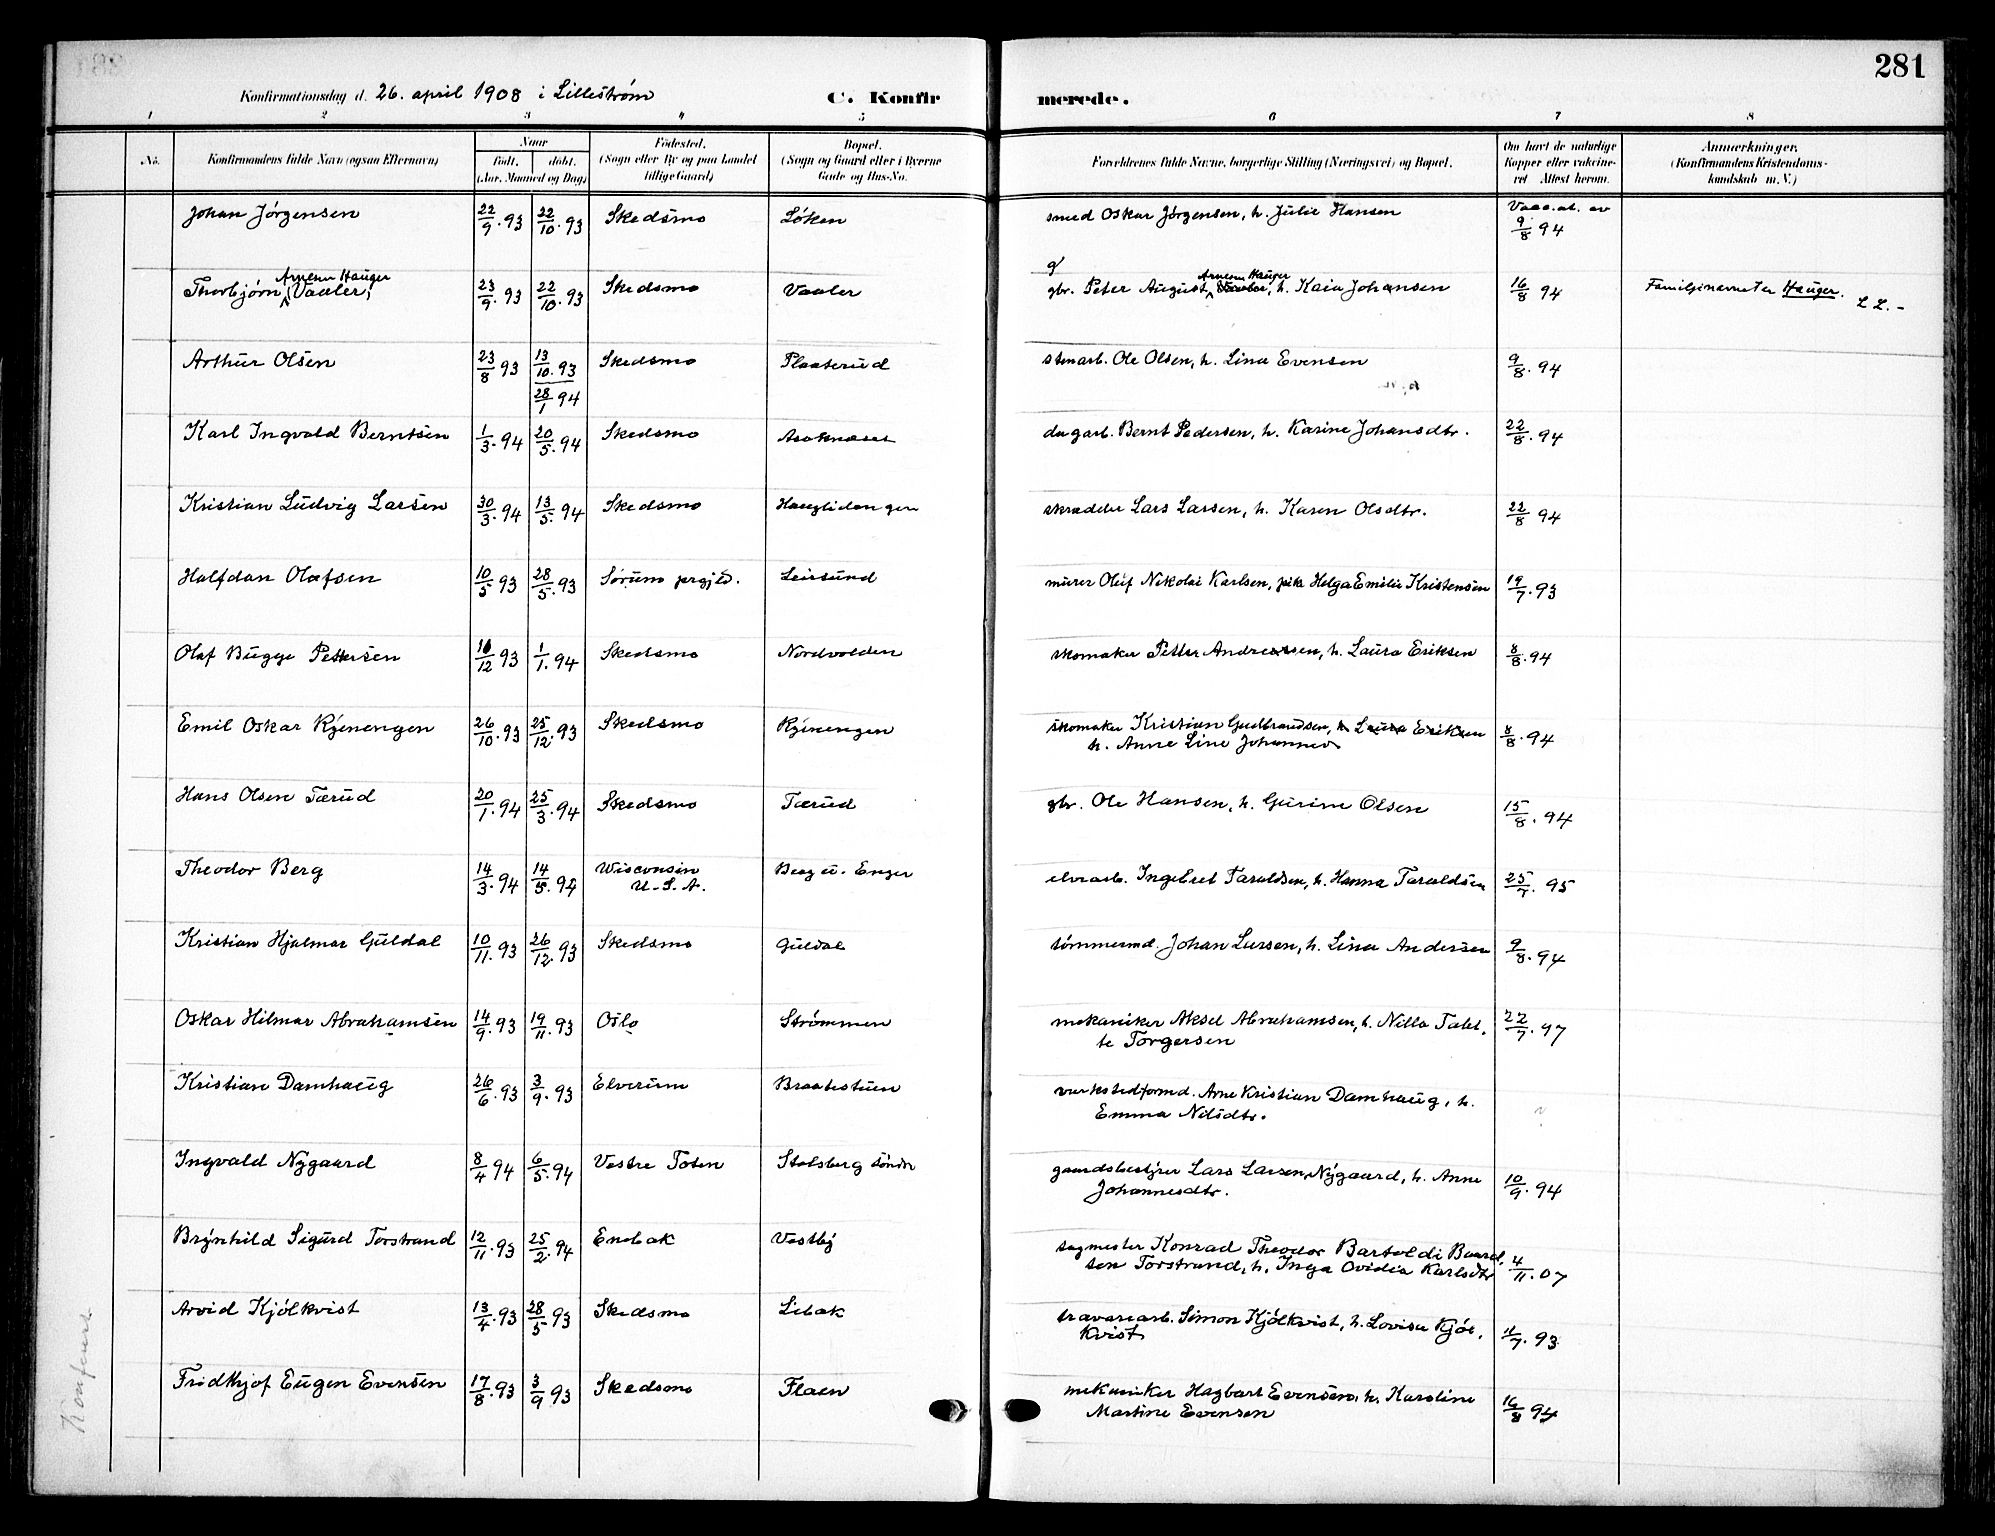 281
Konfirmationsdag d. 26. april 1908 i Lilleström
C. Konfirmerede.
1 2 3 4 5 6 7 8
No. Konfirmandens fulde Navn (ogsaa Efternavn) Naar født. døbt. (Aar, Maaned og Dag) Fødested. (Sogn eller By og paa Landet tillige Gaard) Bopæl. (Sogn og Gaard eller i Byerne Gade og Hus-No. Forældrenes fulde Navne, borgerlige Stilling (Næringsvei) og Bopæl. Om havt de naturlige Kopper eller vakcineret Attest herom. Anmærkninger. (Konfirmandens Kristendomskundskab m. V.)
Johan Jörgensen 22/9. 93 22/10. 93 Skedsmo Löken smed Oskar Jörgensen, h. Julie Hansen Vacc.at. av 9/8 94
Thorbjörn Arnesen Hauger (Vaaler) 23/9. 93 22/10. 93 Skedsmo Vaaler gbr. Peter August Arnesen Hauger Vaaler, h. Kaia Johansen 16/8 94 Familjenavnet er Hauger. L L. -
Arthur Olsen 23/8 93 13/10. 93 28/1 94 Skedsmo Plaaterud stenarb. Ole Olsen, h. Lina Evensen 9/8. 94
Karl Ingvald Berntsen 1/3. 94 20/5. 94 Skedsmo Asaknæset dagarb. Bernt Pedersen, h. Karine Johansdtr. 22/8. 94
Kristian Ludvig Larsen 30/3. 94 13/5. 94 Skedsmo skrædder Lars Larsen, h. Karen Olsdtr. 22/8 94
Halfdan Olafsen 10/5 93 28/5. 93 Sörum prgjld. Leirsund murer Oluf Nikolai Karlsen, pike Helga Emilie Kristensen 19/7. 93
Olaf Bugge Pettersen 12 93 1/1. 94 Skedsmo Nordvolden skomaker Petter Andreassen, h. Laura Eriksen 8/8. 94
Emil Oskar Ryenengen 26/10. 93 25/12. 93 Skedsmo Ryenengen skomaker Kristian Gudbrandsen, h Laura Eriksen
h. Anne Line Johannesd 8/8. 94
Hans Olsen Tærud 20/1. 94 25/3. 94 Skedsmo Tærud gbr. Ole Hansen, h. Gurine Olsen 15/8. 94
Theodor Berg 14/3. 94 14/5. 94 Wisconsin U.S.A. Berg u. Enger elvearb. Ingebret Taraldsen, h. Hanna Taraldsen 25/7. 95
Kristian Hjalmar Guldal 10/11. 93 26/12. 93 Skedsmo Guldal tömmermd. Johan Larsen, h. Lina Andersen 9/8. 94
Oskar Hilmar Abrahamsen 14/9. 93 19/11. 93 Oslo Strömmen mekaniker Aksel Abrahamsen, h. Nilla
te Torgersen 22/7. 97
Kristian Damhaug 26/6. 93 3/9. 93 Elverum Braatestuen verkstedformd. Arne Kristian Damhaug, h.
Emma Nilsdtr.
Ingvald Nygaard 8/4 94 6/5. 94 Vestre Toten Stalsberg söndre gaardsbestyrer Lars Larsen Nygaard, h. Anne
Johannesdtr. 10/9. 94
Brynhild Sigurd Torstrand 12/11. 93 25/2. 94 Enebak Vestby sagmester Konrad Theodor Bartoldi Baard-
sen Torstrand, h. Inga Ovidia Karlsdtr 4/11. 07
Arvid Kjölkvist 13/4. 93 28/5 93 Skedsmo Libak travarearb. Simon Kjölkvist, h. Lovisa Kjöl-
kvist 11/7. 93
Fridthjof Eugen Evensen 17/8. 93 3/9 93 Skedsmo Flaen mekaniker Hagbart Evensen, h. Karoline
Martine Evensen 16/8 94